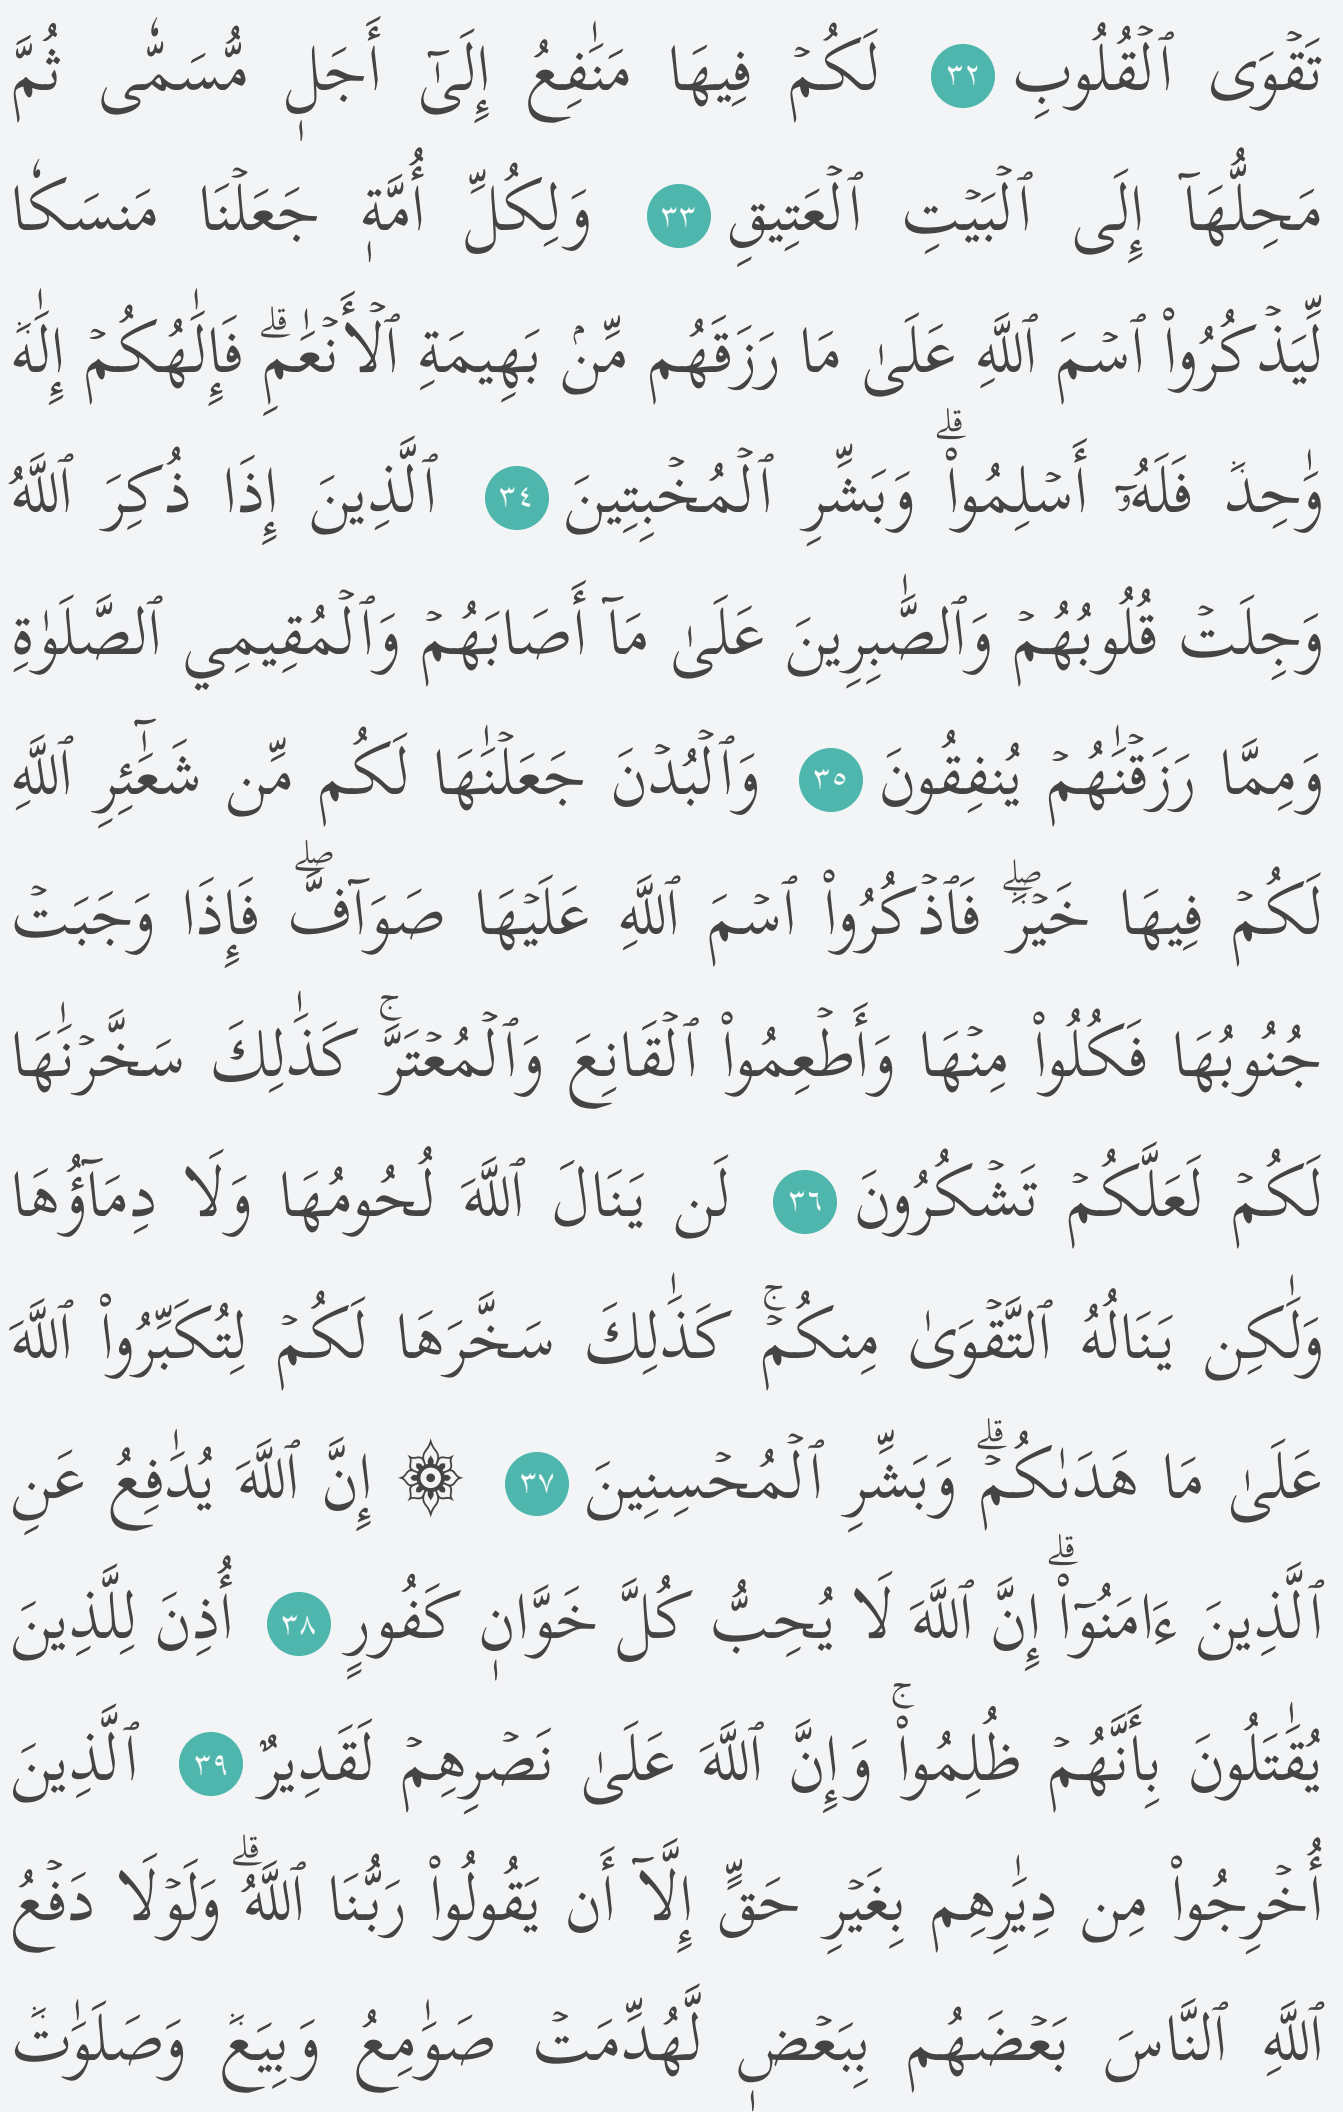 تَقْوَى ٱلْقُلُوبِ ٣٢ لَكُمْ فِيهَا مَنَـٰفِعُ إِلَىٰٓ أَجَلٍ مُّسَمًّى ثُمَّ
مَحِلُّهَآ إِلَى ٱلْبَيْتِ ٱلْعَتِيقِ ٣٣ وَلِكُلِّ أُمَّةٍ جَعَلْنَا مَنسَكًا
لِّيَذْكُرُوا۟ ٱسْمَ ٱللَّهِ عَلَىٰ مَا رَزَقَهُم مِّنۢ بَهِيمَةِ ٱلْأَنْعَـٰمِ ۗ فَإِلَـٰهُكُمْ إِلَـٰهٌ
وَٰحِدٌ فَلَهُۥٓ أَسْلِمُوا۟ ۗ وَبَشِّرِ ٱلْمُخْبِتِينَ ٣٤ ٱلَّذِينَ إِذَا ذُكِرَ ٱللَّهُ
وَجِلَتْ قُلُوبُهُمْ وَٱلصَّـٰبِرِينَ عَلَىٰ مَآ أَصَابَهُمْ وَٱلْمُقِيمِي ٱلصَّلَوٰةِ
وَمِمَّا رَزَقْنَـٰهُمْ يُنفِقُونَ ٣٥ وَٱلْبُدْنَ جَعَلْنَـٰهَا لَكُم مِّن شَعَـٰٓئِرِ ٱللَّهِ
لَكُمْ فِيهَا خَيْرٌ ۖ فَٱذْكُرُوا۟ ٱسْمَ ٱللَّهِ عَلَيْهَا صَوَآفَّ ۖ فَإِذَا وَجَبَتْ
جُنُوبُهَا فَكُلُوا۟ مِنْهَا وَأَطْعِمُوا۟ ٱلْقَانِعَ وَٱلْمُعْتَرَّ ۚ كَذَٰلِكَ سَخَّرْنَـٰهَا
لَكُمْ لَعَلَّكُمْ تَشْكُرُونَ ٣٦ لَن يَنَالَ ٱللَّهَ لُحُومُهَا وَلَا دِمَآؤُهَا
وَلَـٰكِن يَنَالُهُ ٱلتَّقْوَىٰ مِنكُمْ ۚ كَذَٰلِكَ سَخَّرَهَا لَكُمْ لِتُكَبِّرُوا۟ ٱللَّهَ
عَلَىٰ مَا هَدَىٰكُمْ ۗ وَبَشِّرِ ٱلْمُحْسِنِينَ ٣٧ ۞ إِنَّ ٱللَّهَ يُدَٰفِعُ عَنِ
ٱلَّذِينَ ءَامَنُوٓا۟ ۗ إِنَّ ٱللَّهَ لَا يُحِبُّ كُلَّ خَوَّانٍ كَفُورٍ ٣٨ أُذِنَ لِلَّذِينَ
يُقَـٰتَلُونَ بِأَنَّهُمْ ظُلِمُوا۟ ۚ وَإِنَّ ٱللَّهَ عَلَىٰ نَصْرِهِمْ لَقَدِيرٌ ٣٩ ٱلَّذِينَ
أُخْرِجُوا۟ مِن دِيَـٰرِهِم بِغَيْرِ حَقٍّ إِلَّآ أَن يَقُولُوا۟ رَبُّنَا ٱللَّهُ ۗ وَلَوْلَا دَفْعُ
ٱللَّهِ ٱلنَّاسَ بَعْضَهُم بِبَعْضٍ لَّهُدِّمَتْ صَوَٰمِعُ وَبِيَعٌ وَصَلَوَٰتٌ